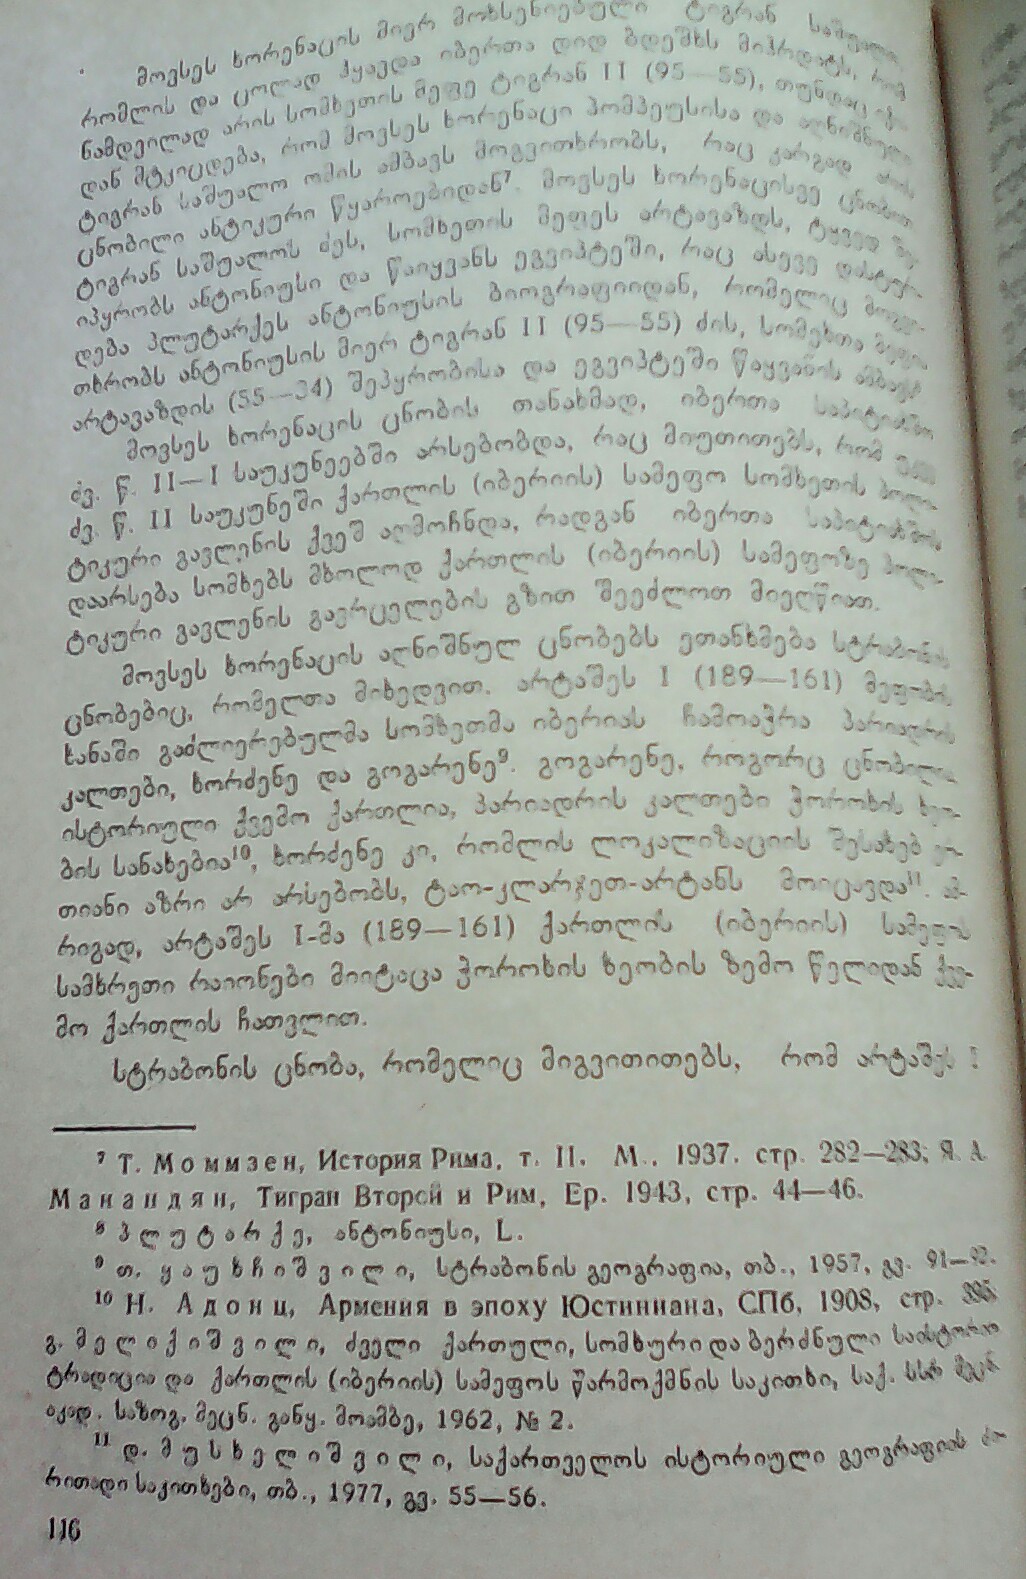 მოვსეს ხორენაცის მიერ მოხსენიებული ტიგრან საშუალი,
რომლის და ცოლად ჰყავდა იბერთა დიდ ბდეშხს მიჰრდატს, რომ
ნამდვილად არის სომხეთის მეფე ტიგრან II (95—55), თუნდაც იქი-
დან მტკიცდება, რომ მოვსეს ხორენაცი პომპეუსისა და აღნიშნული
ტიგრან საშუალო ომის ამბავს მოგვითხრობს, რაც კარგად არის
ცნობილი ანტიკური წყაროებიდან⁷. მოვსეს ხორენაცისვე ცნობით
ტიგრან საშუალოს ძეს, სომხეთის მეფეს არტავაზდს, ტყვედ შე-
იპყრობს ანტონიუსი და წაიყვანს ეგვიპტეში, რაც ასევე დასტურ-
დება პლუტარქეს ანტონიუსის ბიოგრაფიიდან, რომელიც მოგვი-
თხრობს ანტონიუსის მიერ ტიგრან II (95—55) ძის, სომეხთა მეფის
არტავაზდის (55—34) შეპყრობისა და ეგვიპტეში წაყვანის ამბავს
მოვსეს ხორენაცის ცნობის თანახმად, იბერთა საპიტიახშო
ძვ. წ. II—I საუკუნეებში არსებობდა, რაც მიუთითებს, რომ
ძვ. წ. II საუკუნეში ქართლის (იბერიის) სამეფო სომხეთის პოლი-
ტიკური გავლენის ქვეშ აღმოჩნდა, რადგან იბერთა საპიტიახშოს
დაარსება სომხებს მხოლოდ ქართლის (იბერიის) სამეფოზე პოლი-
ტიკური გავლენის გავრცელების გზით შეეძლოთ მიეღწიათ.
მოვსეს ხორენაცის აღნიშნულ ცნობებს ეთანხმება სტრაბონის
ცნობებიც, რომელთა მიხედვით. არტაშეს I (189—161) მეფობის
ხანაში გაძლიერებულმა სომხეთმა იბერიას ჩამოაჭრა პარიადრის
კალთები, ხორძენე და გოგარენე⁹. გოგარენე, როგორც ცნობილია
ისტორიული ქვემო ქართლია, პარიადრის კალთები ჭოროხის ხეო-
ბის სანახებია¹⁰, ხორძენე კი, რომლის ლოკალიზაციის შესახებ ერ-
თიანი აზრი არ არსებობს, ტაო-კლარჯეთ-არტანს მოიცავდა¹¹. ამ-
რიგად, არტაშეს I-მა (189—161) ქართლის (იბერიის) სამეფოს
სამხრეთი რაიონები მიიტაცა ჭოროხის ხეობის ზემო წელიდან ქვე-
მო ქართლის ჩათვლით.
სტრაბონის ცნობა, რომელიც მიგვითითებს, რომ არტაშეს I
⁷ Т. Моммзен, История Рима, т. II. М., 1937. стр. 282—283; Я. А.
Манандян, Тигран Второй и Рим, Ер. 1943, стр. 44—46.
⁸ პლუტარქე, ანტონიუსი, L.
⁹ თ. ყაუხჩიშვილი, სტრაბონის გეოგრაფია, თბ., 1957, გვ. 91—92.
¹⁰ Н. Адонц, Армения в эпоху Юстиниана, СПб, 1908, стр.
გ. მელიქიშვილი, ძველი ქართული, სომხური და ბერძნული საისტორიო
ტრადიცია და ქართლის (იბერიის) სამეფოს წარმოქმნის საკითხი, საქ. სსრ მეცნ.
აკად. საზოგ. მეცნ. განყ. მოამბე, 1962, № 2.
¹¹ დ. მუსხელიშვილი, საქართველოს ისტორიული გეოგრაფიის ძი-
რითადი საკითხები, თბ., 1977, გვ. 55—56.
116